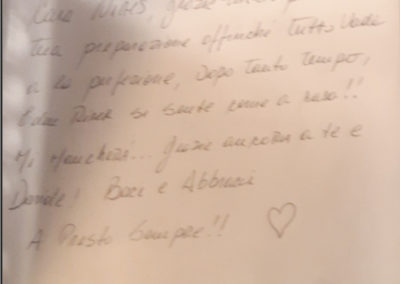 Cara Nives, grazie
tua preparazione affinché tutto vada
a la perfezione, dopo tanto tempo,
si sente come a casa!!
Mi Mancherai... Grazie ancora a te e
Davide! Baci e Abbracci
A Presto Sempre!! ♡